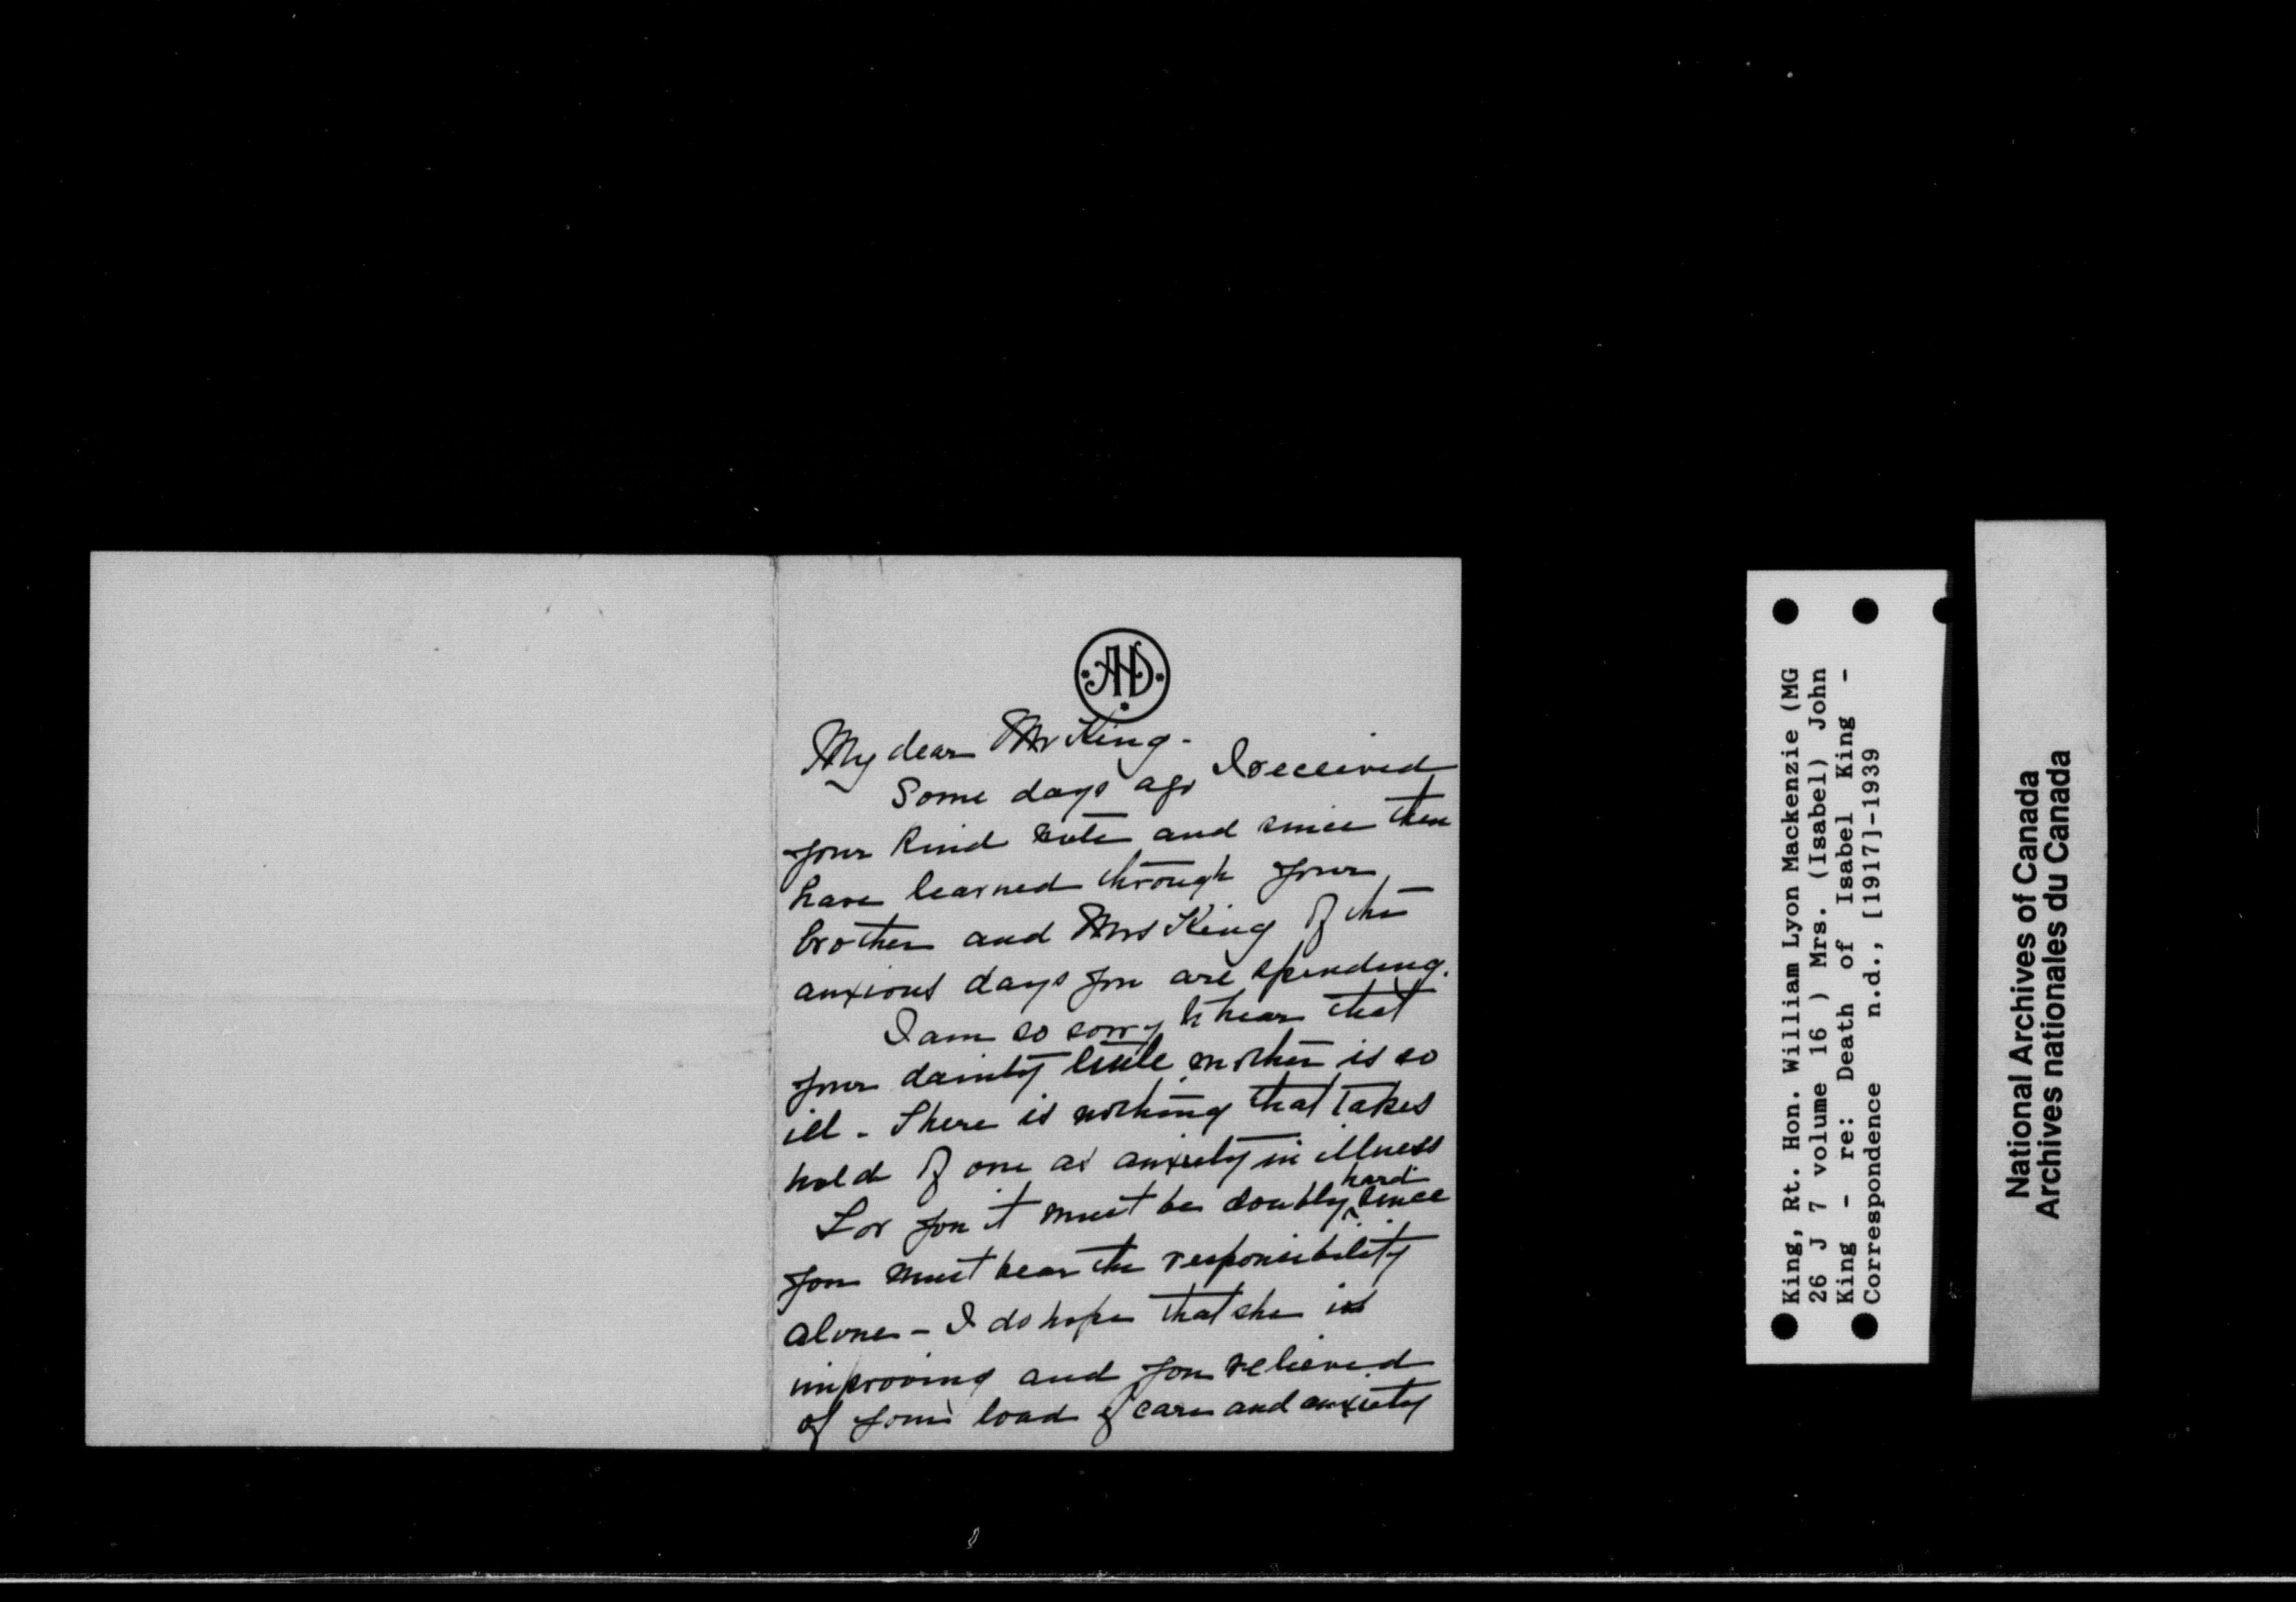 AHD
My dear Mr King-
Some days ago I received
your kind note and since then
have learned through your
brother and Mrs King of the
anxious days you are spending.
I am so sorry to hear that
your dainty little mother is so
ill - There is nothing that takes
hold of one as anxiety in illness
For you it must be doubly hard since
you must bear the responsibility
alone - I do hope that she is
improving and you relieved
of your load of care and anxiety
King, Rt. Hon. William Lyon Mackenzie (MG
26 J 7 volume 16 ) Mrs. (Isabel) John
King - re: Death of Isabel King -
Correspondence n.d., [1917]-1939
National Archives of Canada
Archives nationales du Canada